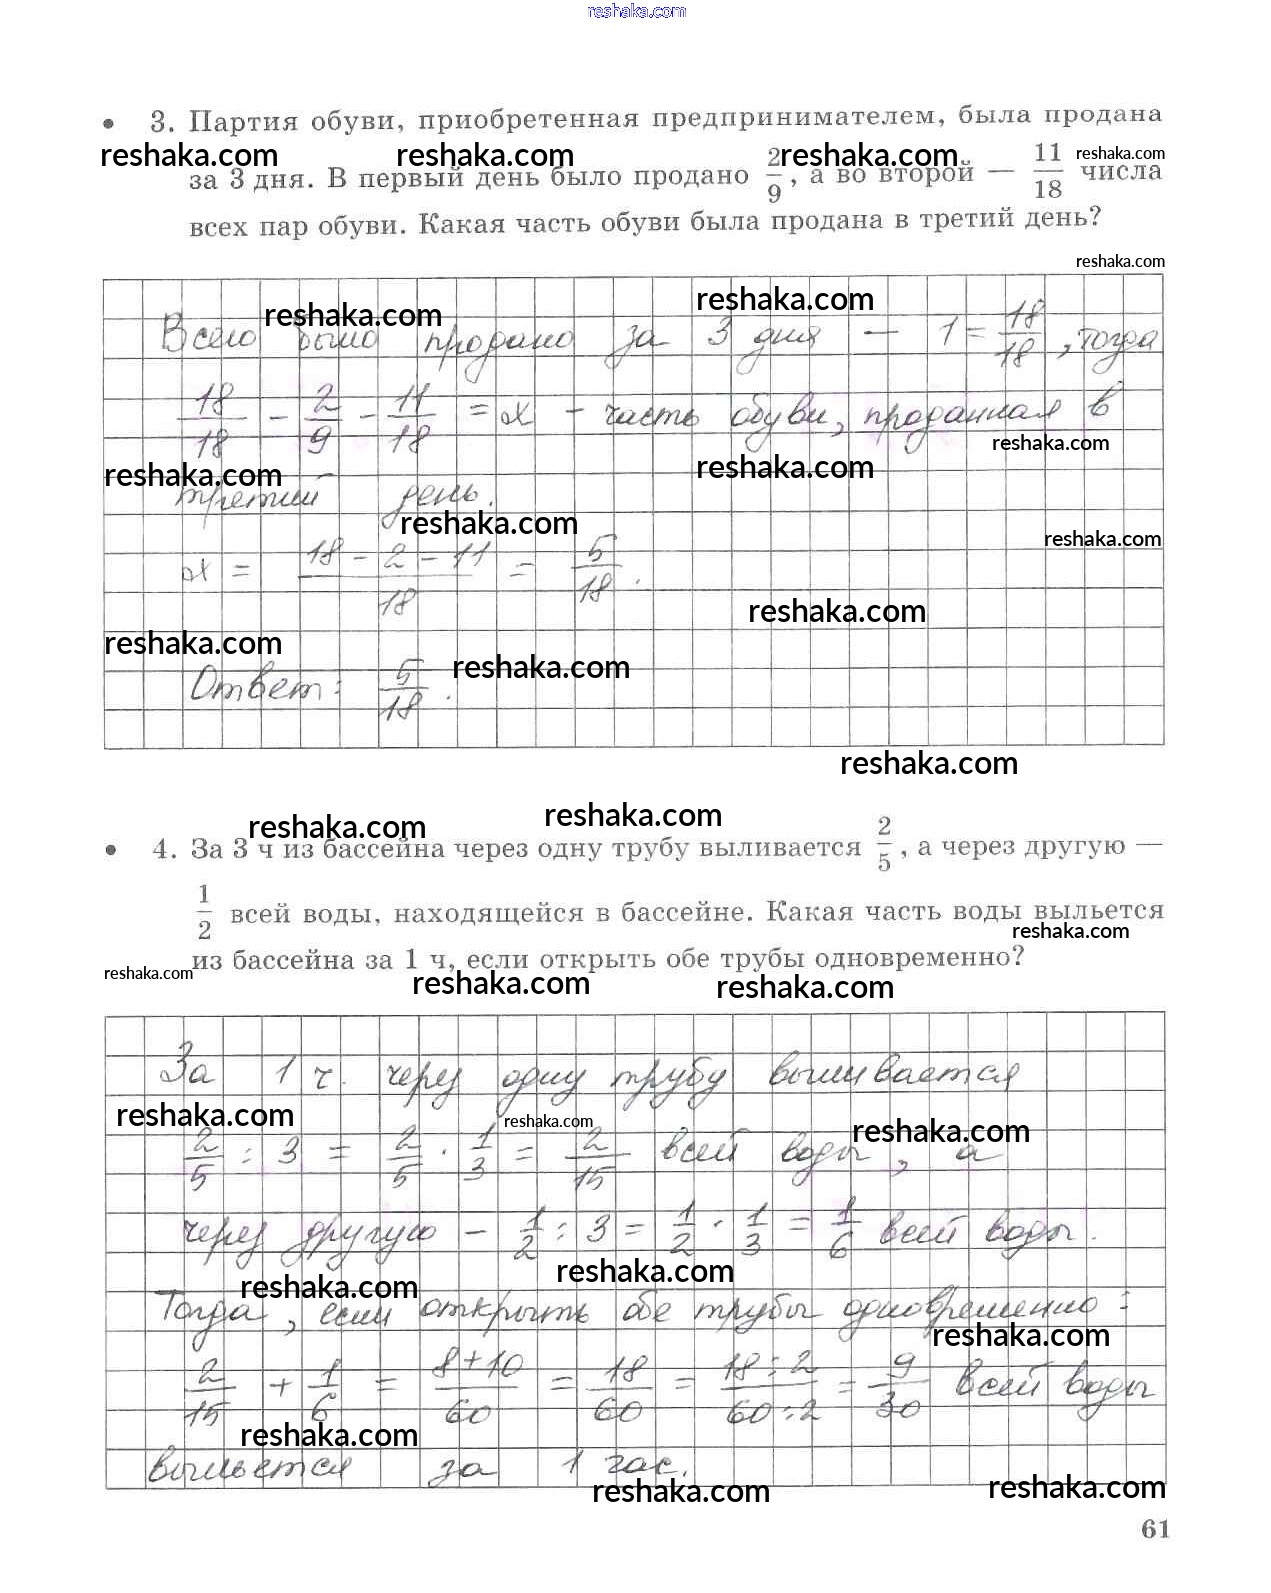 reshaka.com
• 3. Партия обуви, приобретенная предпринимателем, была продана
reshaka.com reshaka.com reshaka.com reshaka.com
за 3 дня. В первый день было продано 2/9, а во второй — 11/18 числа
всех пар обуви. Какая часть обуви была продана в третий день?
reshaka.com
reshaka.com reshaka.com
Всего было продано за 3 дня — 1 = 18/18, тогда
18/18 - 2/9 - 11/18 = x - часть обуви, проданная в
reshaka.com
reshaka.com reshaka.com
третий день.
reshaka.com
reshaka.com
x = (18 - 2 - 11)/18 = 5/18.
reshaka.com
reshaka.com reshaka.com
Ответ: 5/18.
reshaka.com
reshaka.com reshaka.com
• 4. За 3 ч из бассейна через одну трубу выливается 2/5, а через другую —
1/2 всей воды, находящейся в бассейне. Какая часть воды выльется
reshaka.com
из бассейна за 1 ч, если открыть обе трубы одновременно?
reshaka.com reshaka.com reshaka.com
За 1 ч. через одну трубу выливается
reshaka.com reshaka.com reshaka.com
2/5 : 3 = 2/5 · 1/3 = 2/15 всей воды, а
через другую - 1/2 : 3 = 1/2 · 1/3 = 1/6 всей воды.
reshaka.com reshaka.com
Тогда, если открыть обе трубы одновременно:
reshaka.com
2/15 + 1/6 = (8+10)/60 = 18/60 = (18:2)/(60:2) = 9/30 всей воды
reshaka.com
выльется за 1 час.
reshaka.com reshaka.com
61